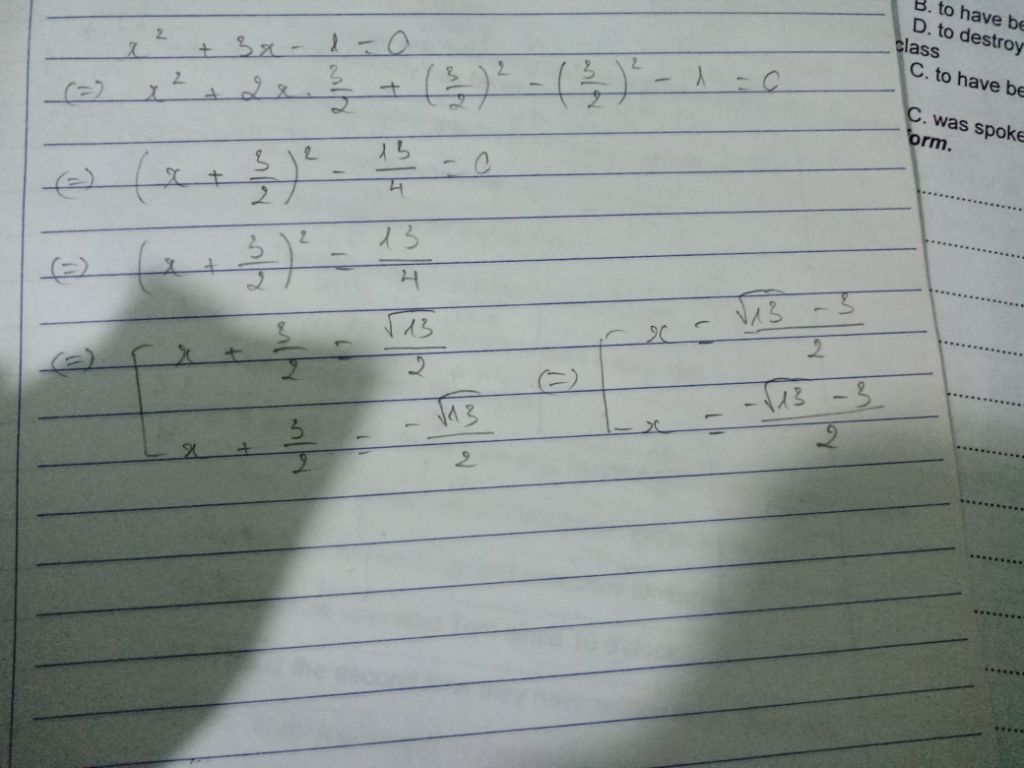 x² + 3x - 1 = 0
(=) x² + 2x . 3/2 + (3/2)² - (3/2)² - 1 = 0
(=) (x + 3/2)² - 13/4 = 0
(=) (x + 3/2)² = 13/4
(=) [ x + 3/2 = √13/2
x + 3/2 = -√13/2
(=) [ x = (√13 - 3)/2
x = (-√13 - 3)/2
B. to have be
D. to destroy
class
C. to have be
C. was spoke
orm.